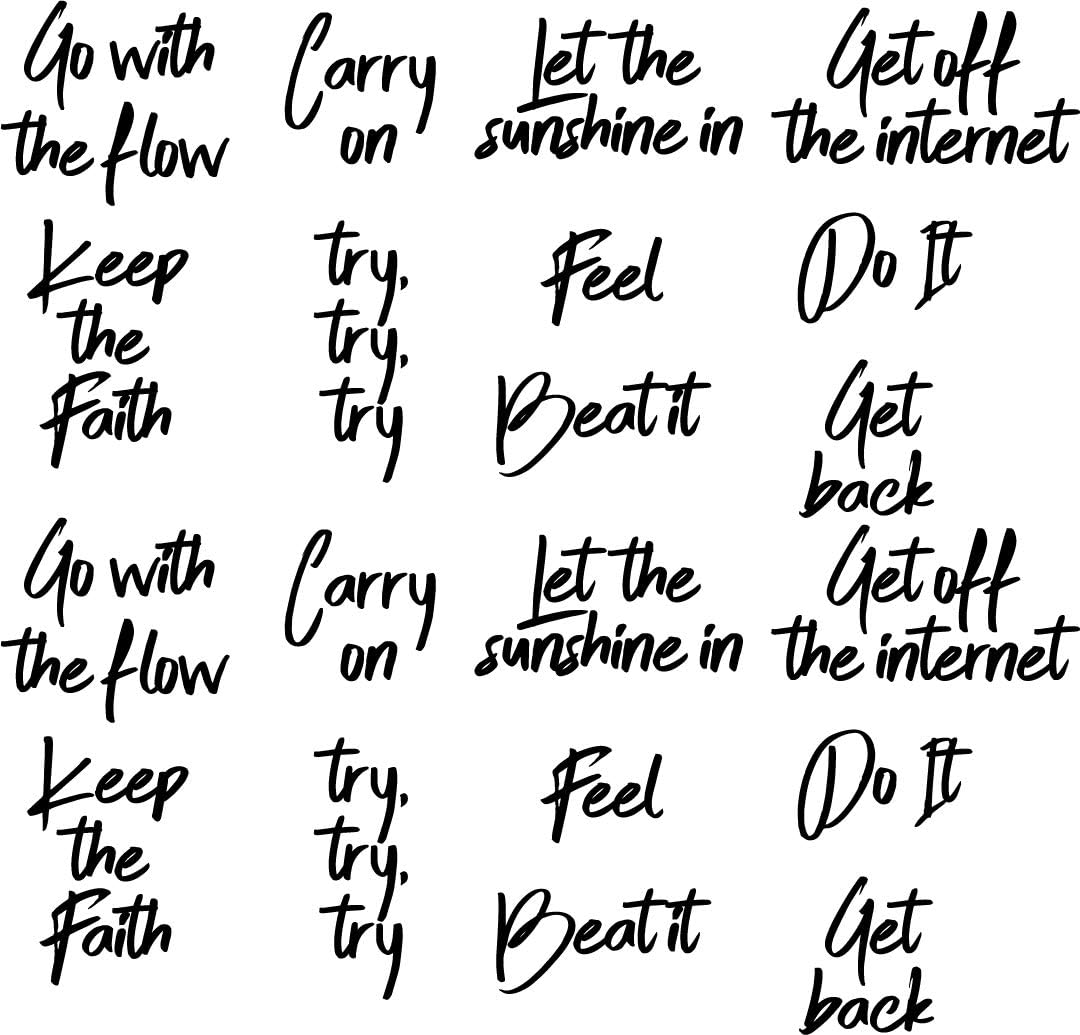 Go with
the flow
Carry
on
Let the
sunshine in
Get off
the internet
Keep
the
Faith
try,
try,
try
Feel
Do It
Beat it
Get
back
Go with
the flow
Carry
on
Let the
sunshine in
Get off
the internet
Keep
the
Faith
try,
try,
try
Feel
Do It
Beat it
Get
back